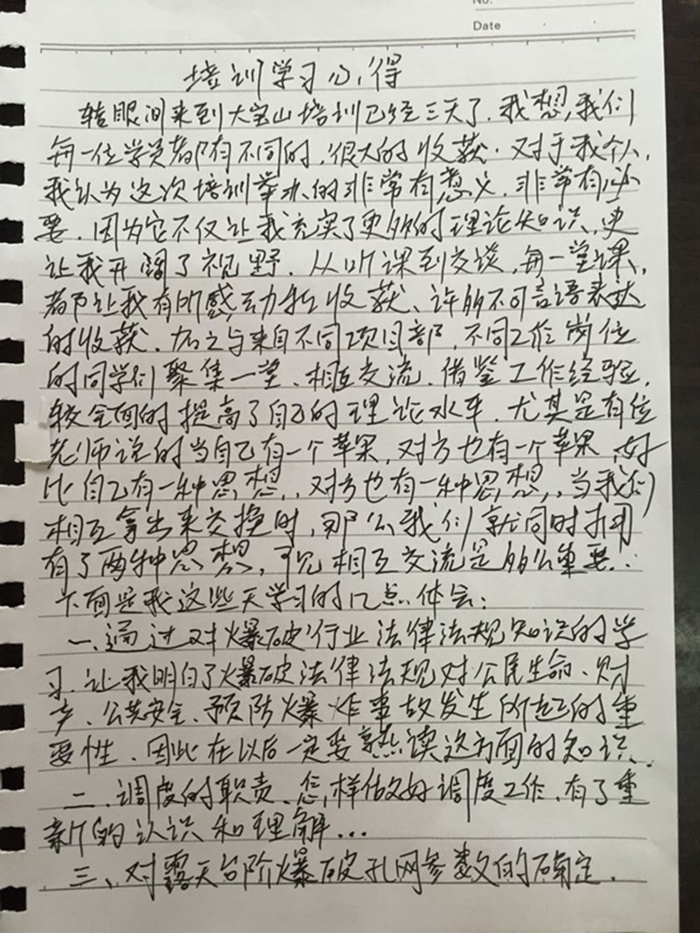 No.
Date
培训学习心得
转眼间来到大宝山培训已经三天了.我想,我们
每一位学员都有不同的,很大的收获.对于我个人,
我认为这次培训举办的非常有意义,非常有必
要.因为它不仅让我充实了更多的理论知识,更
让我开阔了视野.从听课到交谈,每一堂课,
都让我有所感动和收获、许多不可言语表达
的收获.加之与来自不同项目部,不同工作岗位
的同学们聚集一堂、相互交流.借鉴工作经验,
较全面的提高了自己的理论水平.尤其是有位
老师说的当自己有一个苹果,对方也有一个苹果,好
比自己有一种思想,,对方也有一种思想,,当我们
相互拿出来交换时,那么我们就同时拥
有了两种思想,可见相互交流是多么重要.
下面是我这些天学习的几点体会:
一.通过对爆破行业法律法规知识的学
习.让我明白了爆破法律法规对公民生命、财
产、公共安全、预防爆炸事故发生所起的重
要性.因此在以后一定要熟读这方面的知识.
二.调度的职责、怎样做好调度工作.有了重
新的认识和理解...
三、对露天台阶爆破孔网参数的确定.